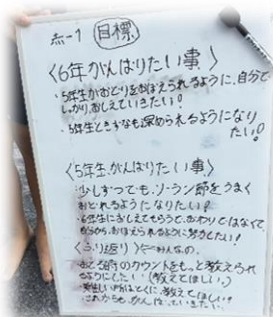 赤-1 目標
〈6年がんばりたい事〉
・5年生がおどりをおぼえられるように、自分で
しっかりおしえていきたい!
・5年生ときずなも深められるようになり
たい!
〈5年生がんばりたい事〉
少しずつでも、ソーラン節をうまく
おどれるようになりたい!
・6年生におしえてもらうで、おわりではなくて、
自分から、おぼえられるように努力したい!
〈ふり返り〉←みんなの。
・おどる時のカウントをもっと教えられ
るようにしたい(教えてほしい。)
・難しい所はとくに、教えてほしい!
・これからも、がんばっていきたい。